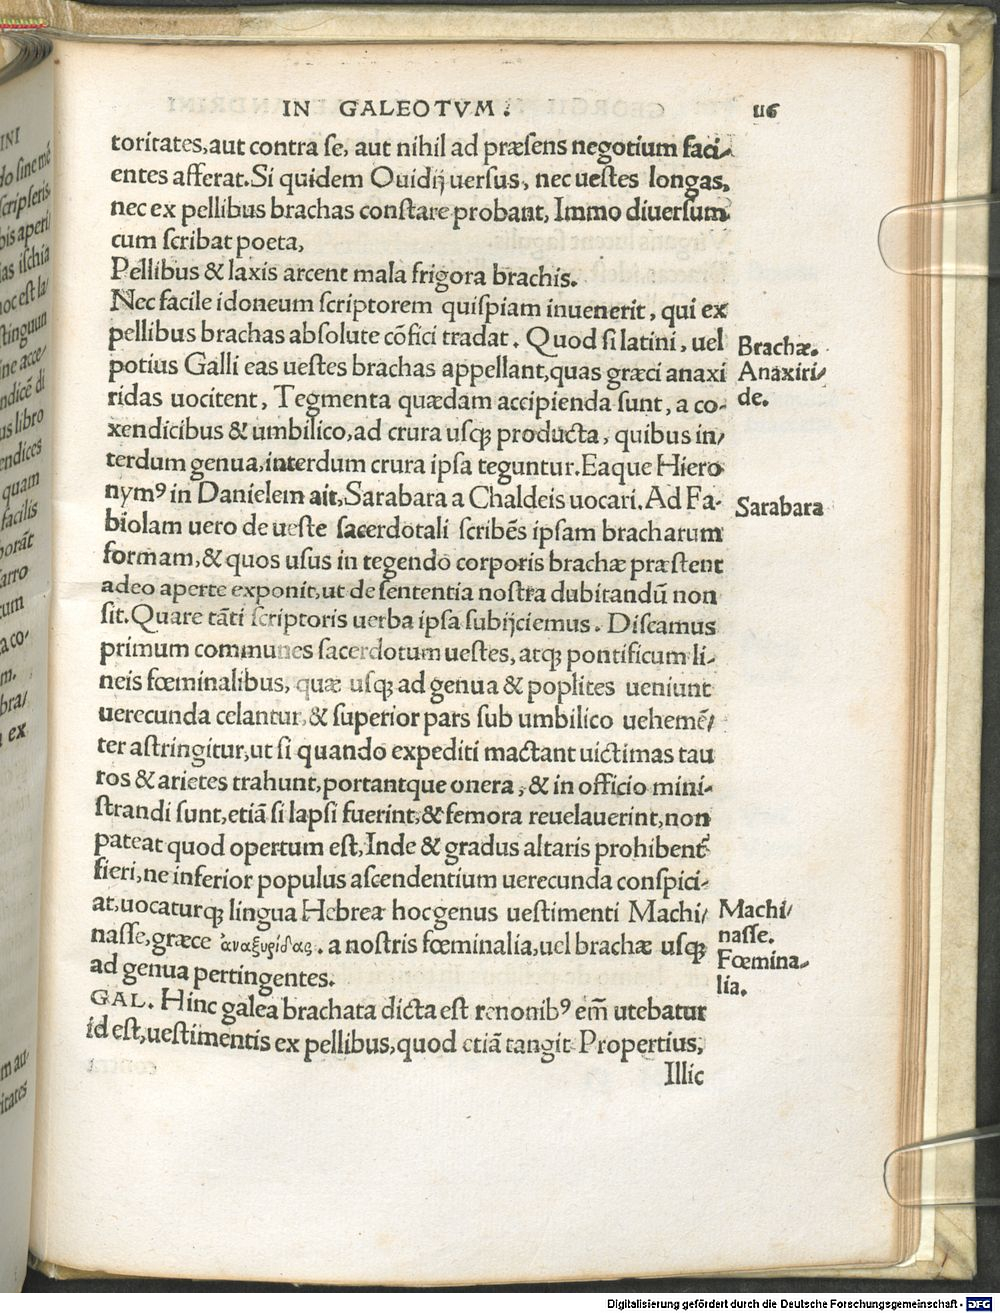 IN GALEOTVM. 116
toritates,aut contra se, aut nihil ad præsens negotium faci⸗
entes afferat.Si quidem Ouidij uersus, nec uestes longas,
nec ex pellibus brachas constare probant, Immo diuersum
cum scribat poeta,
Pellibus & laxis arcent mala frigora brachis.
Nec facile idoneum scriptorem quispiam inuenerit, qui ex
pellibus brachas absolute cõfici tradat. Quod si latini, uel
potius Galli eas uestes brachas appellant,quas græci anaxi
ridas uocitent, Tegmenta quædam accipienda sunt, a co-
xendicibus & umbilico,ad crura usqꝫ producta, quibus in/
terdum genua,interdum crura ipsa teguntur.Eaque Hiero
nymꝰ in Danielem ait,Sarabara a Chaldeis uocari.Ad Fa-
biolam uero de ueste sacerdotali scribẽs ipsam bracharum
formam,& quos usus in tegendo corporis brachæ præstent
adeo aperte exponit,ut de sententia nostra dubitandũ non
sit.Quare tãti scriptoris uerba ipsa subijciemus. Discamus
primum communes sacerdotum uestes, atqꝫ pontificum li-
neis fœminalibus, quæ usqꝫ ad genua & poplites ueniunt
uerecunda celantur,& superior pars sub umbilico uehemẽ/
ter astringitur,ut si quando expediti mactant uictimas tau
ros & arietes trahunt,portantque onera, & in officio mini-
strandi sunt,etiã si lapsi fuerint,& femora reuelauerint,non
pateat quod opertum est,Inde & gradus altaris prohibent᷑
fieri,ne inferior populus ascendentium uerecunda conspici-
at,uocaturqꝫ lingua Hebrea hoc genus uestimenti Machi/
nasse,græce ἀναξυρίδας. a nostris fœminalia,uel brachæ usqꝫ
ad genua pertingentes.
GAL. Hinc galea brachata dicta est renonibꝰ em̃ utebatur
id est,uestimentis ex pellibus,quod etiã tangit Propertius,
Illic
Brachæ.
Anaxiri/
de.
Sarabara
Machi/
nasse.
Fœmina-
lia.
Digitalisierung gefördert durch die Deutsche Forschungsgemeinschaft - DFG